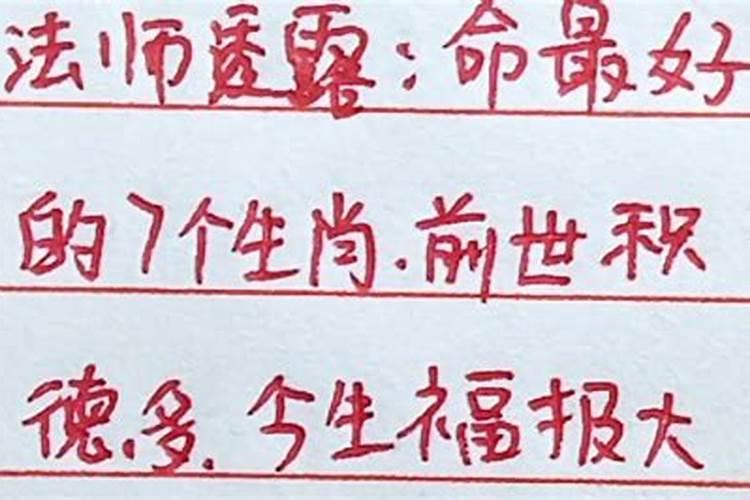 法师透露：命最好
的7个生肖.前世积
德多.今生福报大